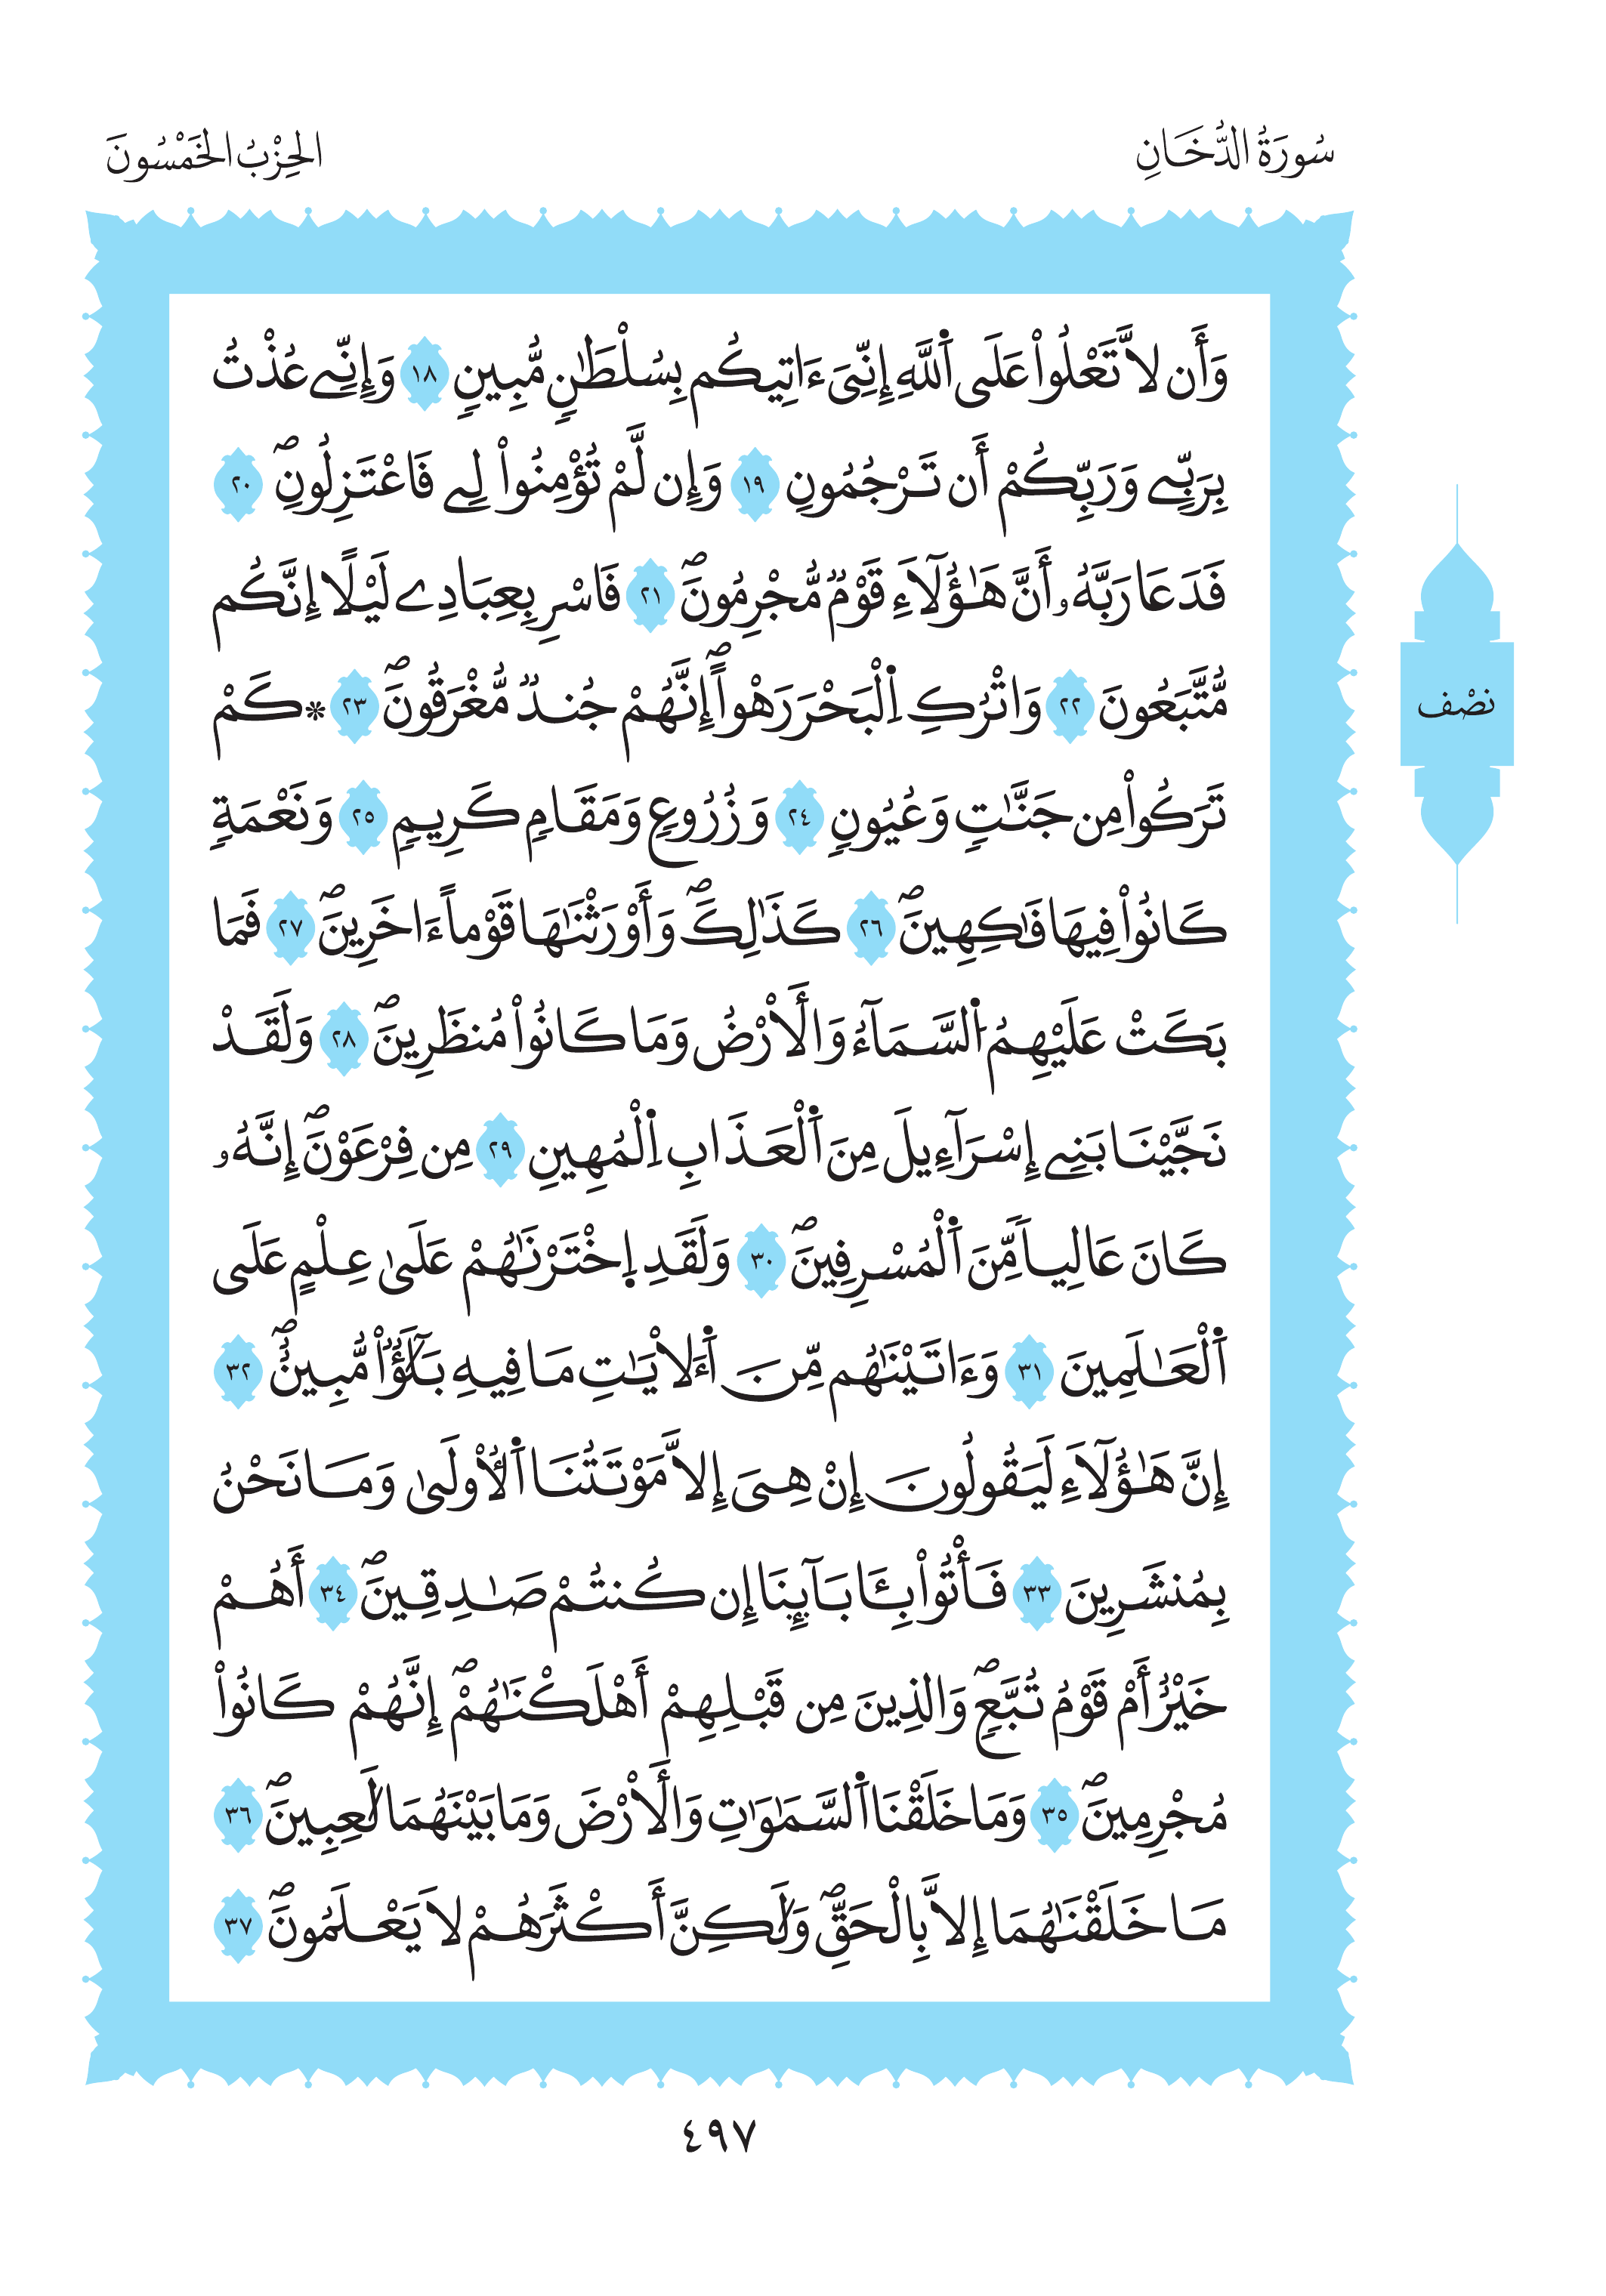 سُورَةُ الدُّخَانِ
الحِزْبُ الخَمْسُونَ
وَأَن لاَّ تَعْلُواْ عَلَى اَ۬للَّهِ إِنِّيَ ءَاتِيكُم بِسُلْطَٰنٖ مُّبِينٖ ١٨ وَإِنِّے عُذْتُ
بِرَبِّے وَرَبِّكُمُ أَن تَرْجُمُونِ ١٩ وَإِن لَّمْ تُؤْمِنُواْ لِے فَاعْتَزِلُونِۖ ٢٠
فَدَعَا رَبَّهُۥ أَنَّ هَٰٓؤُلَآءِ قَوْمٞ مُّجْرِمُونَۖ ٢١ فَاسْرِ بِعِبَادِے لَيْلًا اِنَّكُم
مُّتَّبَعُونَ ٢٢ وَاتْرُكِ اِ۬لْبَحْرَ رَهْواًۖ اِنَّهُمْ جُندٞ مُّغْرَقُونَۖ ٢٣ * كَمْ
تَرَكُواْ مِن جَنَّٰتٖ وَعُيُونٖ ٢٤ وَزُرُوعٖ وَمَقَامٖ كَرِيمٖ ٢٥ وَنَعْمَةٖ
كَانُواْ فِيهَا فَٰكِهِينَۖ ٢٦ كَذَٰلِكَۖ وَأَوْرَثْنَٰهَا قَوْماً ءَاخَرِينَۖ ٢٧ فَمَا
بَكَتْ عَلَيْهِمُ اُ۬لسَّمَآءُ وَالَارْضُ وَمَا كَانُواْ مُنظَرِينَۖ ٢٨ وَلَقَدْ
نَجَّيْنَا بَنِے إِسْرَآءِيلَ مِنَ اَ۬لْعَذَابِ اِ۬لْمُهِينِ ٢٩ مِن فِرْعَوْنَۖ إِنَّهُۥ
كَانَ عَالِياٗ مِّنَ اَ۬لْمُسْرِفِينَۖ ٣٠ وَلَقَدِ اِ۪خْتَرْنَٰهُمْ عَلَىٰ عِلْمٍ عَلَى
اَ۬لْعَٰلَمِينَ ٣١ وَءَاتَيْنَٰهُم مِّنَ اَ۬لَايَٰتِ مَا فِيهِ بَلَٰٓؤٞاْ مُّبِينٌۖ ٣٢
إِنَّ هَٰٓؤُلَآءِ لَيَقُولُونَ إِنْ هِيَ إِلاَّ مَوْتَتُنَا اَ۬لُاولَىٰ وَمَا نَحْنُ
بِمُنشَرِينَ ٣٣ فَأْتُواْ بِـَٔابَآئِنَا إِن كُنتُمْ صَٰدِقِينَۖ ٣٤ أَهُمْ
خَيْرٌ اَمْ قَوْمُ تُبَّعٖۖ وَالذِينَ مِن قَبْلِهِمُۥٓ أَهْلَكْنَٰهُمُۥٓۖ إِنَّهُمْ كَانُواْ
مُجْرِمِينَۖ ٣٥ وَمَا خَلَقْنَا اَ۬لسَّمَٰوَٰتِ وَالَارْضَ وَمَا بَيْنَهُمَا لَٰعِبِينَۖ ٣٦
مَا خَلَقْنَٰهُمَا إِلاَّ بِالْحَقِّۖ وَلَٰكِنَّ أَكْثَرَهُمْ لاَ يَعْلَمُونَۖ ٣٧
نصْف
٤٩٧